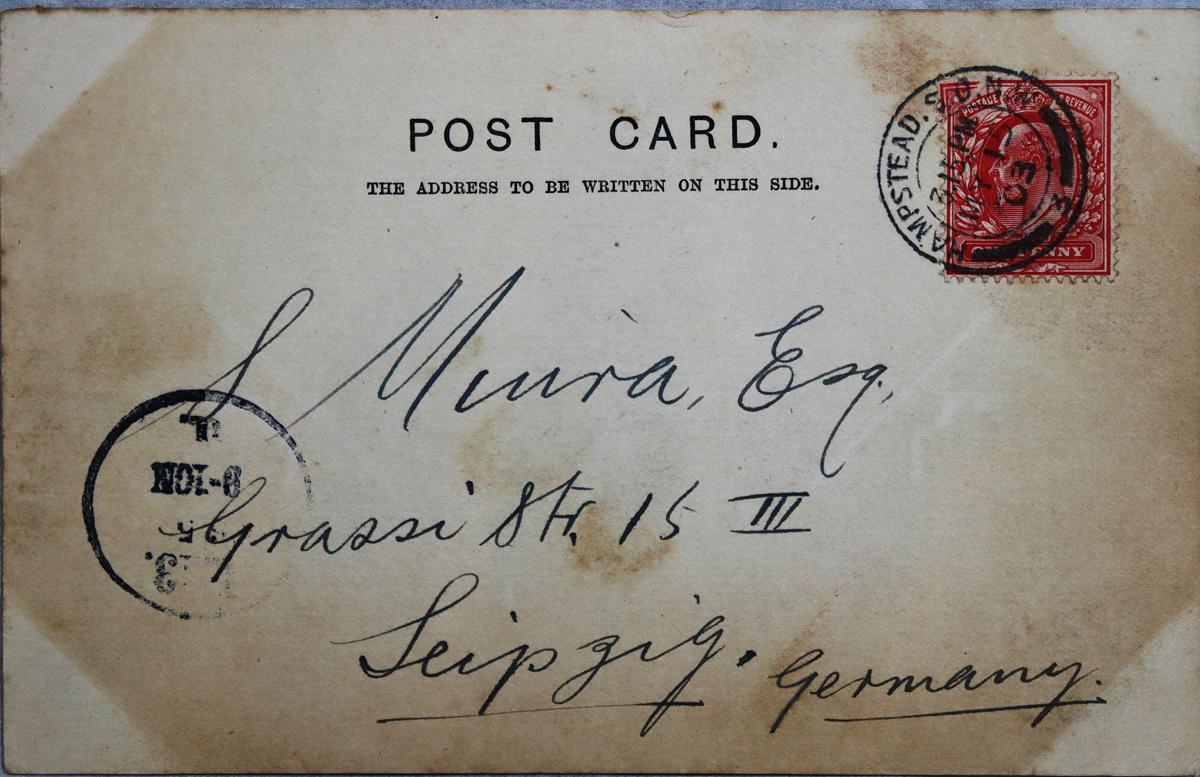 POST CARD.
THE ADDRESS TO BE WRITTEN ON THIS SIDE.
HAMPSTEAD. S.O.N.W.
3
2 15 PM
MY 1
03
POSTAGE REVENUE
ONE PENNY
S Miura, Esq.,
Grassi Str. 15 III
Leipzig. Germany.